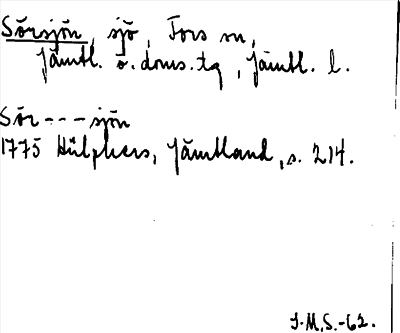 Sörsjön, sjö, Fors sn,
Jämtl. ö. doms. tg, Jämtl. l.
Sör---sjön
1775 Hülphers, Jämtland, s. 214.
J.M.S.-62.